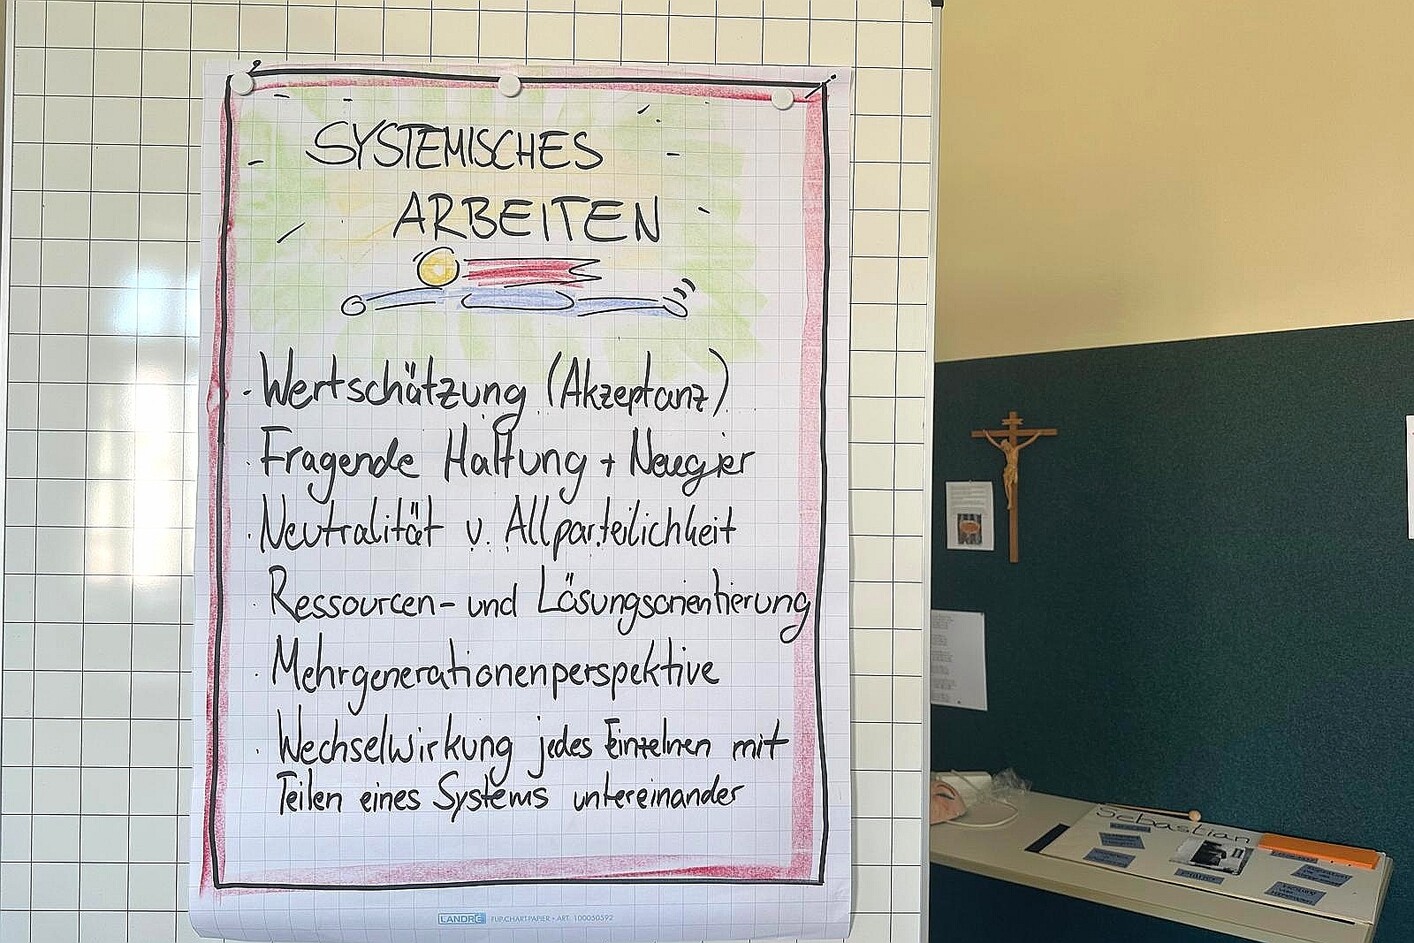 SYSTEMISCHES
ARBEITEN
· Wertschätzung (Akzeptanz)
· Fragende Haltung + Neugier
· Neutralität v. Allparteilichkeit
· Ressourcen- und Lösungsorientierung
· Mehrgenerationenperspektive
· Wechselwirkung jedes Einzelnen mit
Teilen eines Systems untereinander
LANDRÉ FLIP-CHART-PAPIER • ART. 100050592
Sebastian